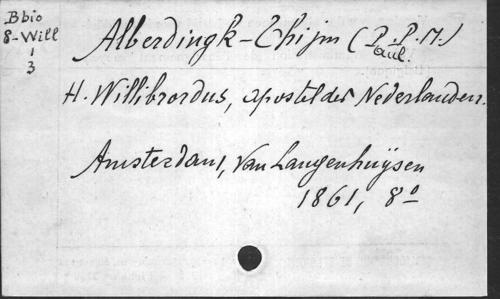 Bbio
8-Will
1
3
Alberdingk-Thijm (P. P. M.)
aul.
H. Willibrordus, apostel der Nederlanden.
Amsterdam, Van Langenhuÿsen
1861, 8º